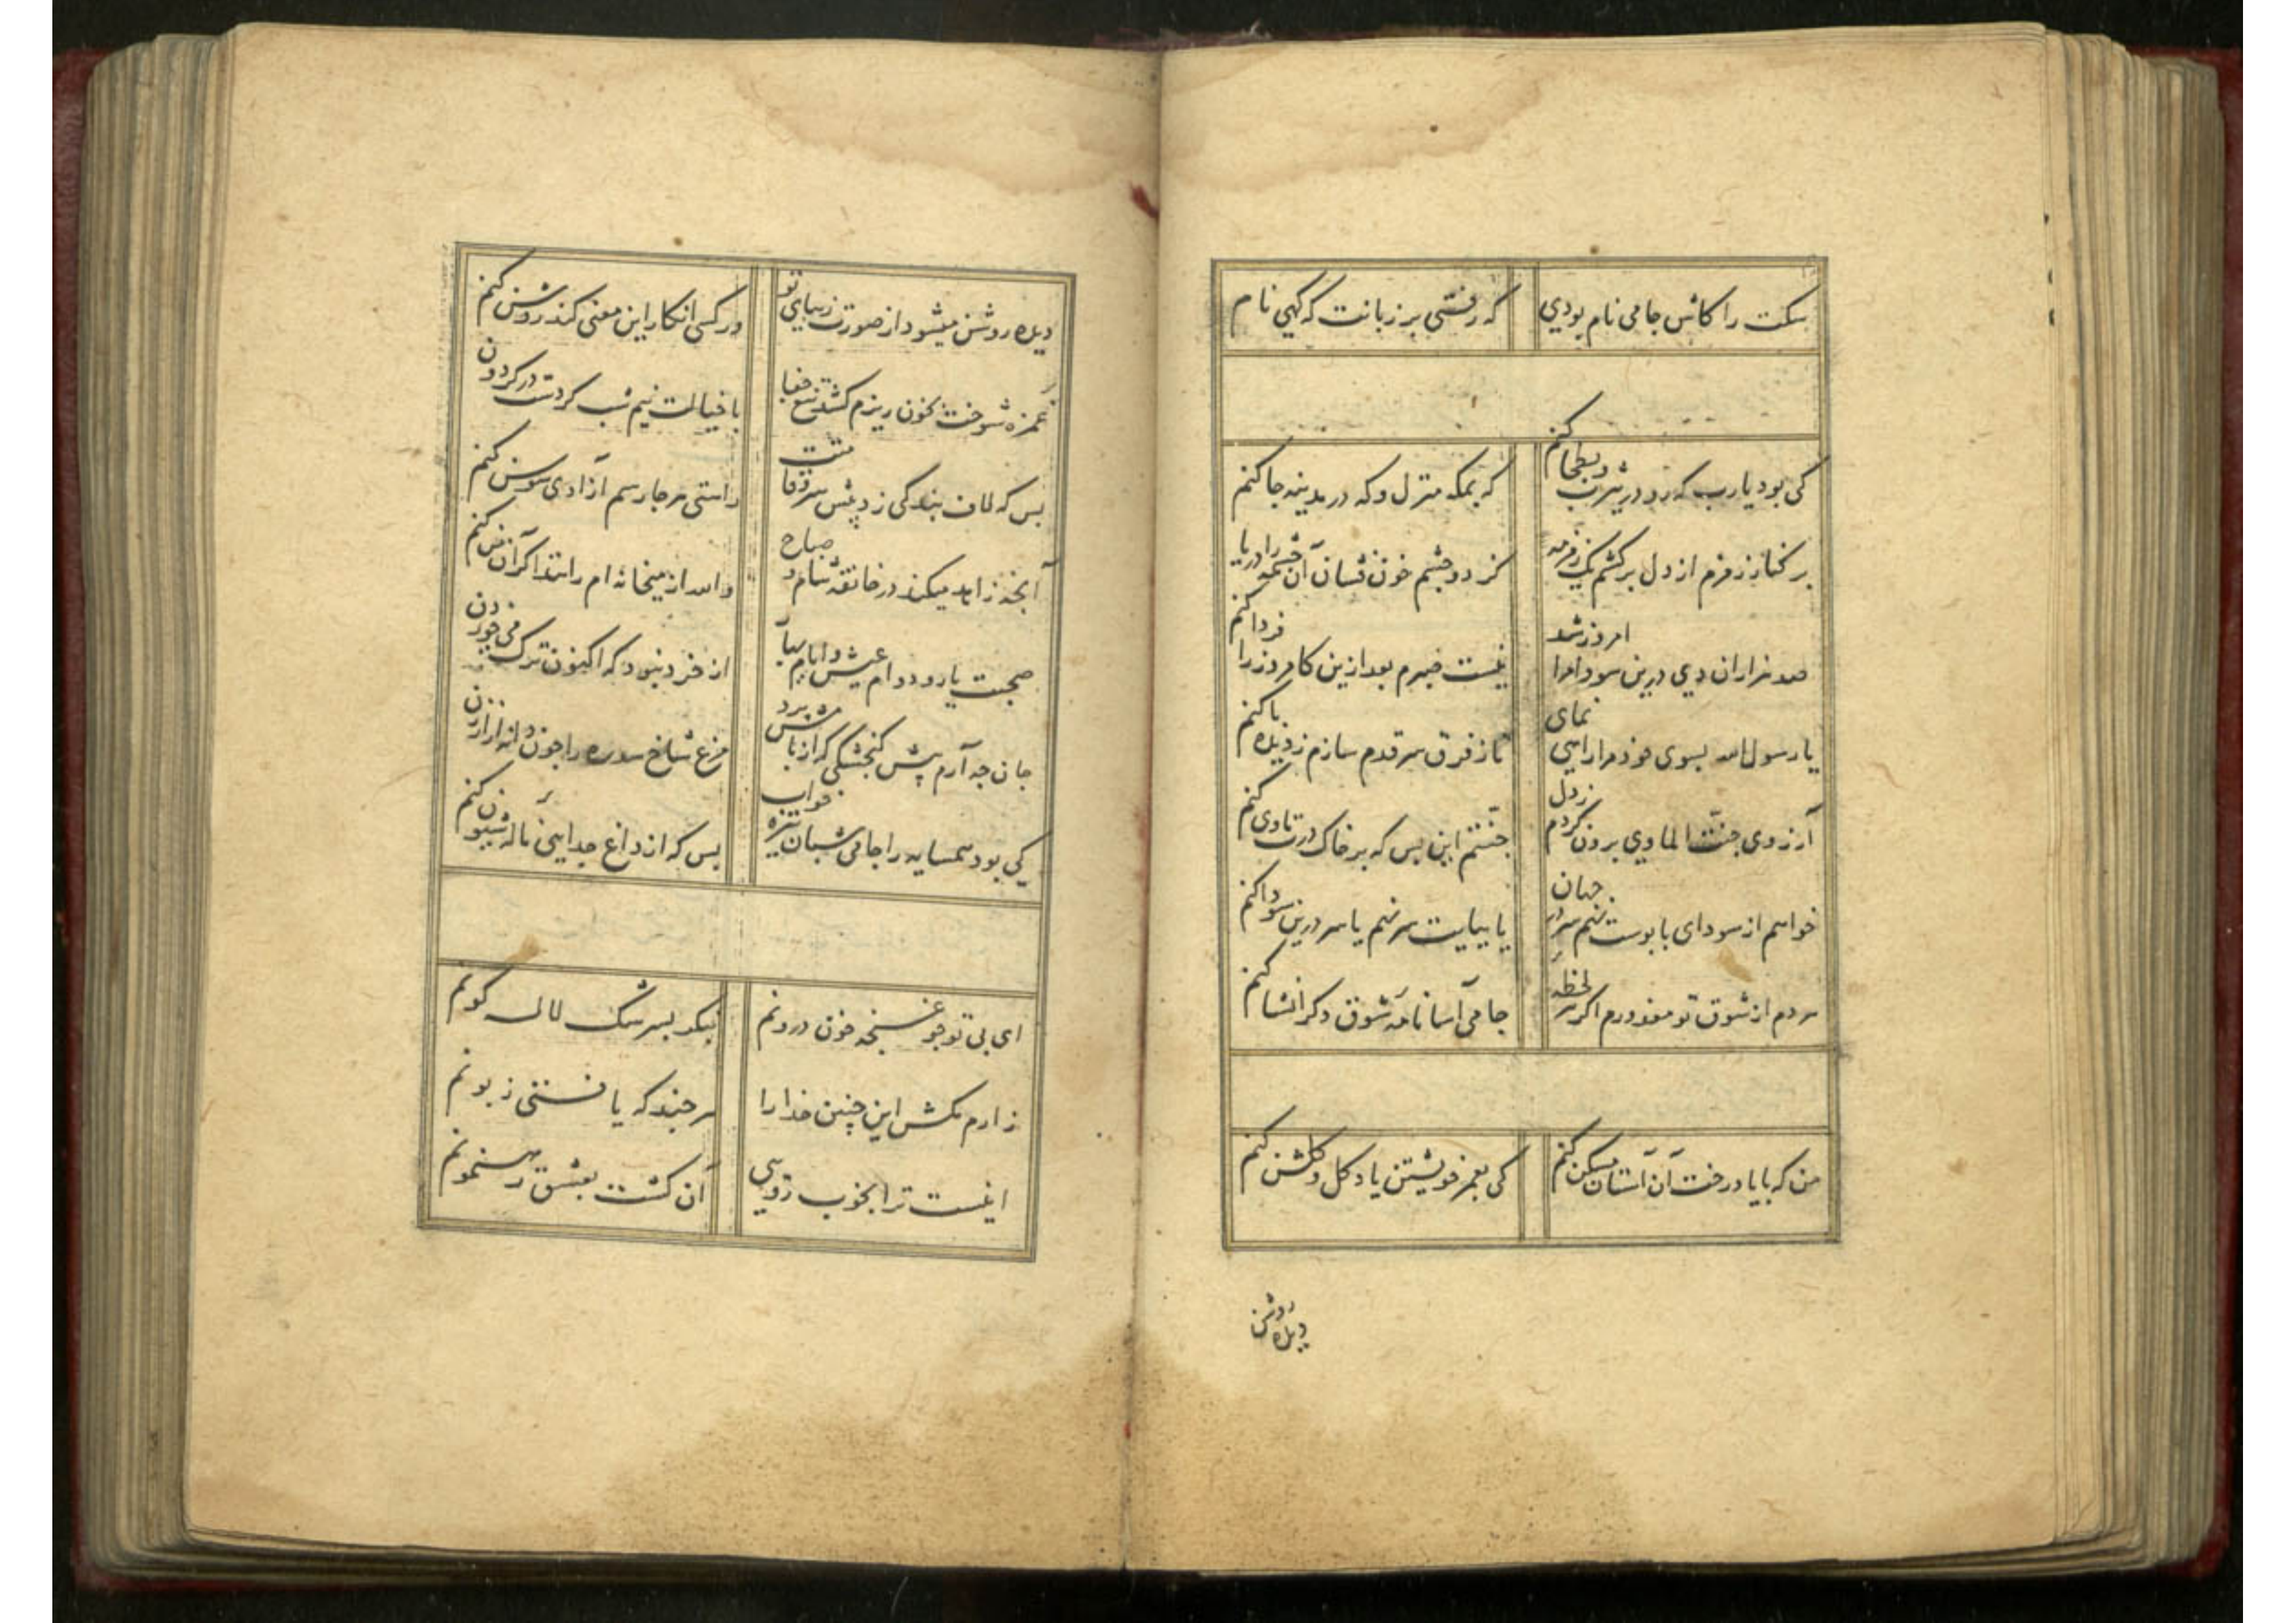 سکت را کاش جامی نام بودی که رفتی بر زبانت که کهی نام
کی بود یا رب که رو در یثرب و بطحا کنم که بمکه منزل و که در مدینه جا کنم
بر کنار زمزم از دل برکشم یک زمزمه کز دو چشم خون فشان آن چشمه را دریا کنم
صد هزاران دی درین سودا مرا امروز شد نیست صبرم بعد ازین کامروز را فردا کنم
یا رسول الله بسوی خود مرا راهی نمای تا ز فرق سر قدم سازم ز دیده پا کنم
آرزوی جنت الماوی برون کردم ز دل جنتم این بس که بر خاک درت ماوی کنم
خواهم از سودای پابوست نهم سر در جهان یا بپایت سر نهم یا سر درین سودا کنم
مردم از شوق تو معذورم اکر هر لحظه جامی آسا نامه شوق دکر انشا کنم
من که با یاد رخت آن آستان مسکن کنم کی بعمر خویشتن یاد کل و کلشن کنم
دیده روشن
دیده روشن میشود از صورت زیبای تو ور کسی انکار این معنی کند روشن کنم
غمزه شوخت بخون ریزم کشد تیغ جفا با خیالت نیم شب کر دست در کردن
بس که لاف بندکی زد پیش سرو قامتت راستی هر جا رسم آزادی سوسن کنم
آنچه زاهد میکند در خانقه شام و صباح والله از میخانه ام رانند اکر آن من کنم
صحبت یار و دوام عیش و ایام بهار از خرد نبود که اکنون ترک می خوردن
جان چه آرم پیش کنجشکی که از بامش پرد مرغ شاخ سدره را چون دانه ارزن
کی بود همسایه را جامی شبان تیره خواب بس که از داغ جدایی ناله و شیون کنم
ای بی تو چو غنچه خون درونم بنکر بسرشک لاله کونم
زارم مکش این چنین خدا را هر چند که یافتی زبونم
اینست ترا بخوب رویی آن کشت بعشق رهنمونم